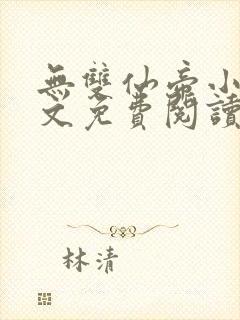 無雙仙帝小
文免費閱讀
林清